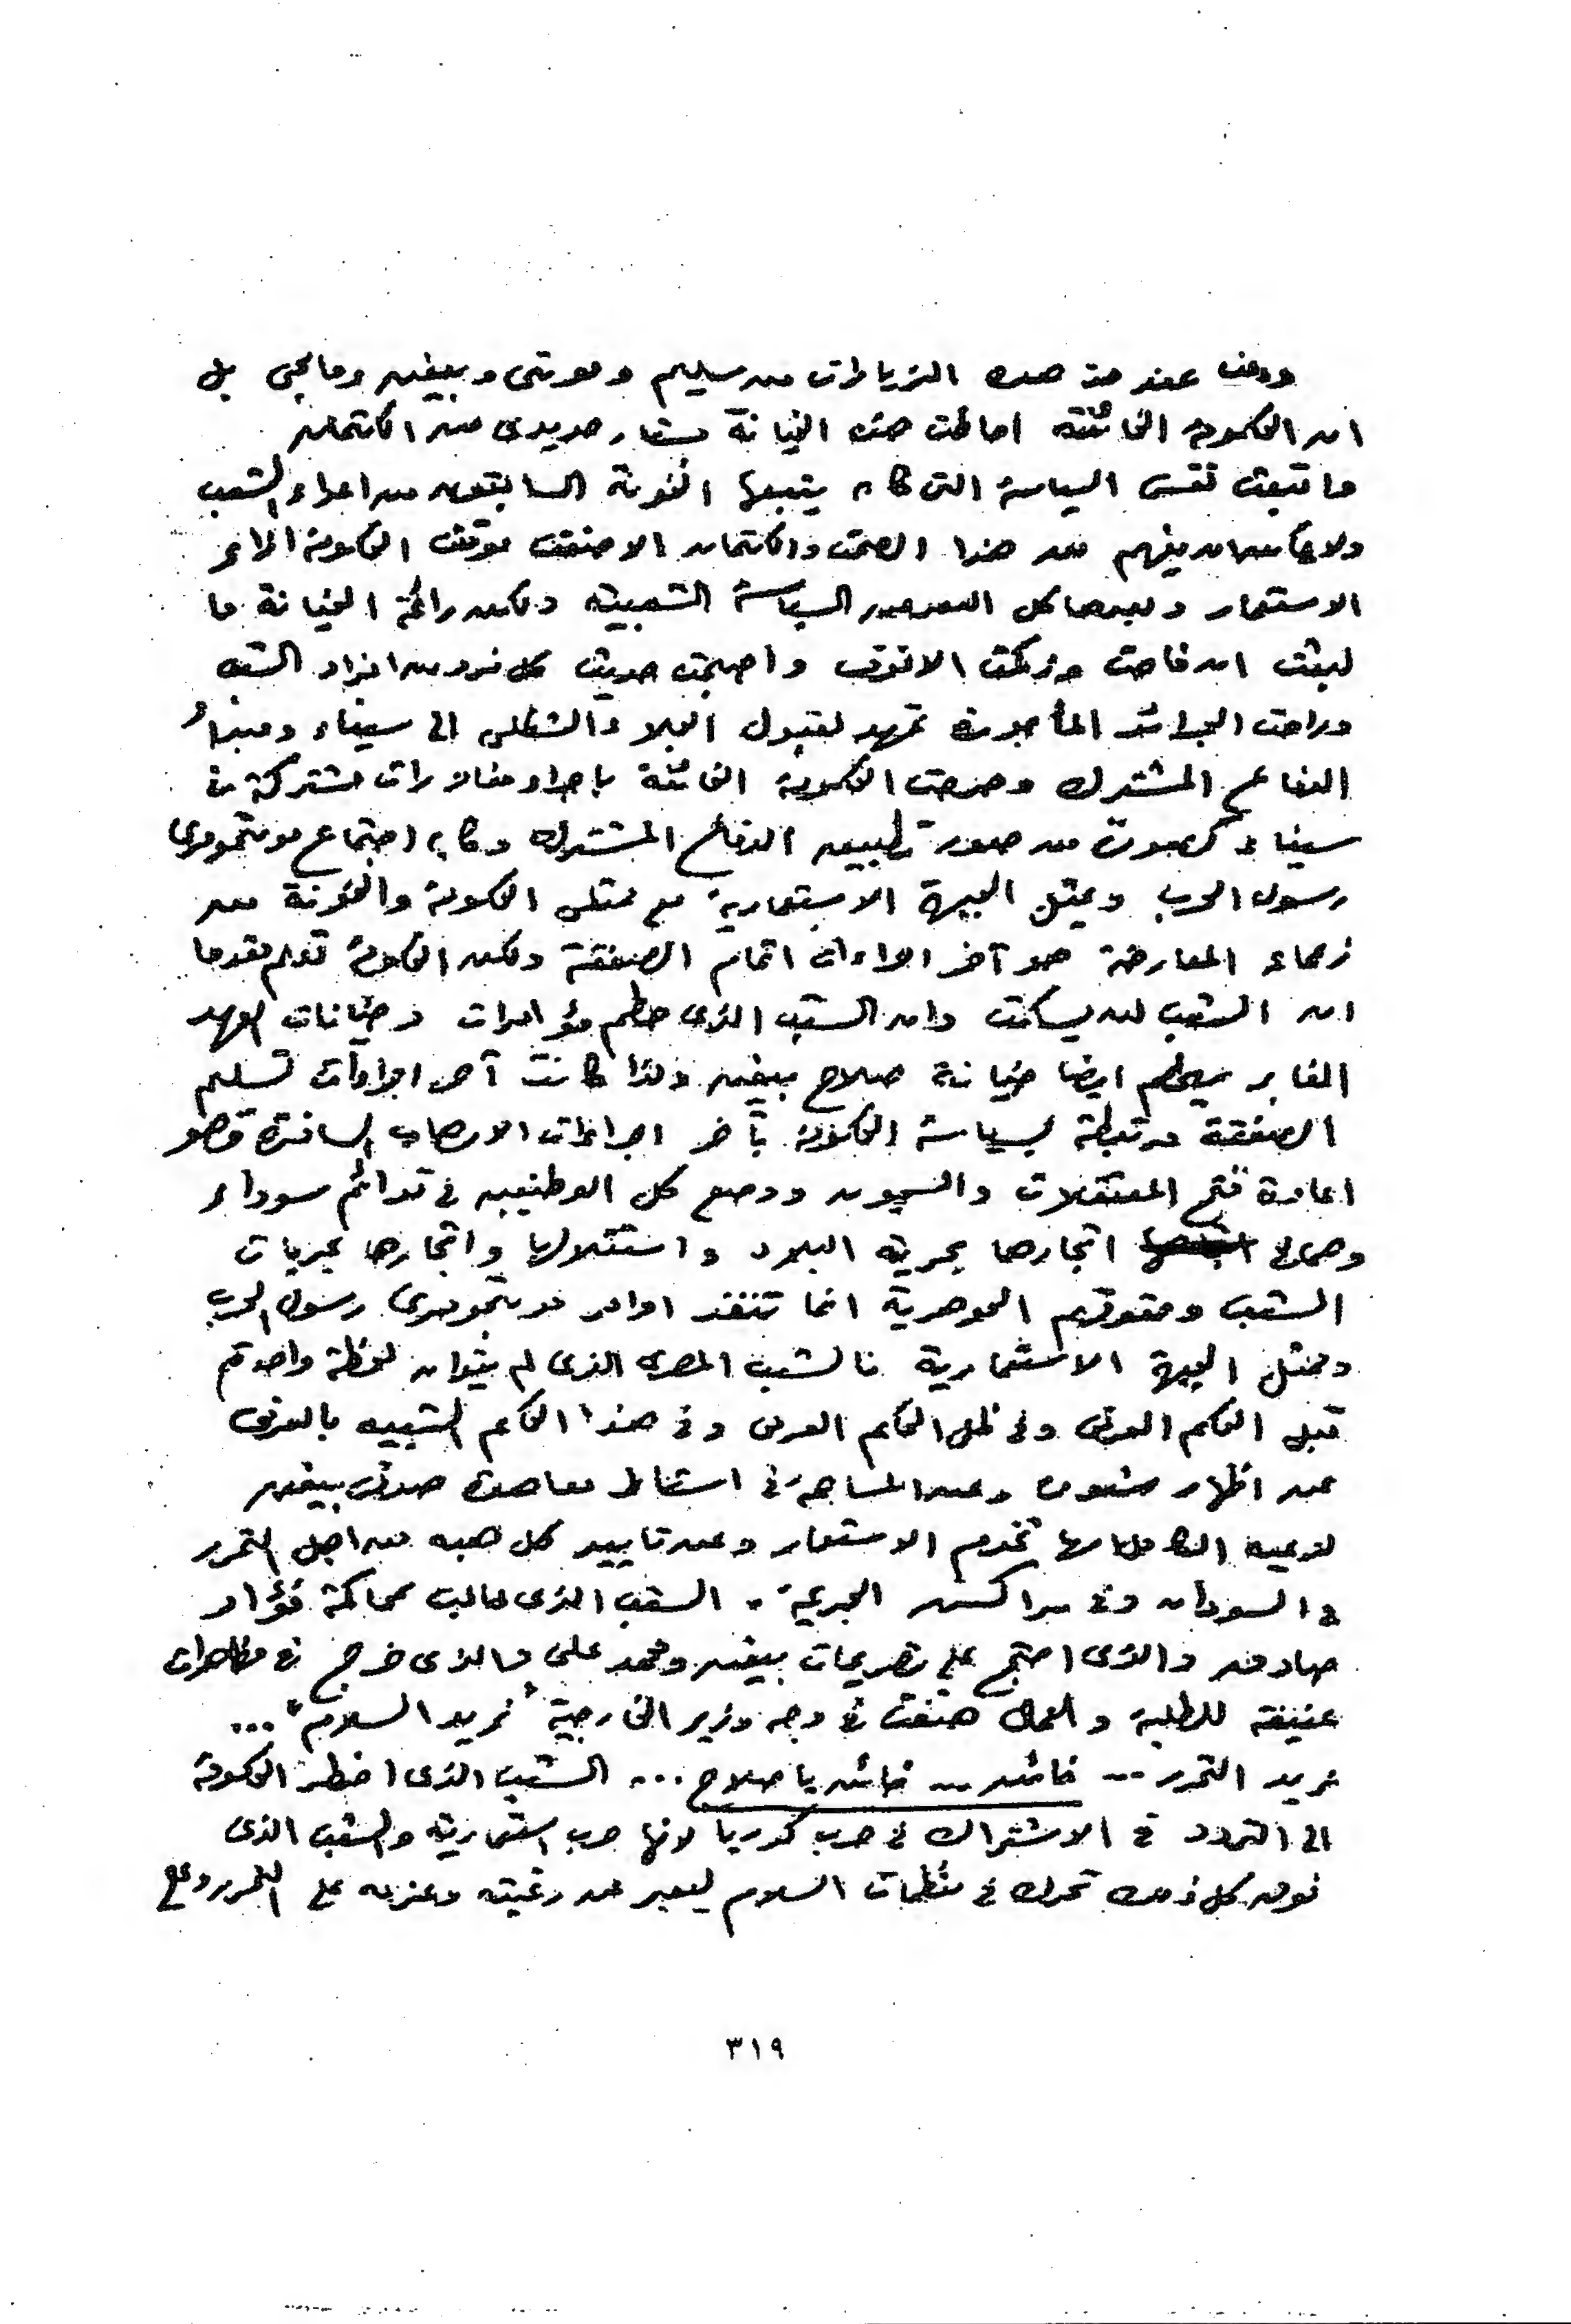 هذه الزيارات من سليم وموتى وبيفن وماجى بل
ان الحكومة الخائنة احاطت هذه الخيانة بستار حديدى من الكتمان
ما تبعت نفس السياسة التى كان يتبعها الخونة السابقون من اعداء الشعب
ولا يمكن ان يفهم من هذا الصمت والكتمان الا موقف الحكومة
الاستعمار السياسة الشعبية ولكن رائحة الخيانة ما
لبثت ان فاحت وزكمت الانوف واصبحت حديث كل فرد من افراد الشعب
وراحت الجرائد المأجورة تمهد لقبول الجلاء الشكلى الى سيناء ومبدأ
الدفاع المشترك وخرجت الحكومة الخائنة باجراء مناورات مشتركة فى
سيناء كصورة من صور تطبيق الدفاع المشترك وكان اجتماع مونتجومرى
رسول الحرب وممثل الجبهة الاستعمارية مع ممثلى الحكومة والخونة من
زعماء المعارضة هو آخر اجراءات اتمام الصفقة ولكن الحكومة تعلم مقدما
ان الشعب لن يسكت وان الشعب الذى حطم مؤامرات وخيانات العهد
الغابر سيحطم ايضا خيانة صلاح بيفن ولذا كانت آخر اجراءات تسليم
الصفقة مرتبطة بسياسة الحكومة بآخر اجراءات الارهاب السافرة وهو
اعادة فتح المعتقلات والسجون ووضع كل الوطنيين فى قوائم سوداء
وهى فى اتجارها بحرية البلاد واستقلالها واتجارها بحريات
الشعب وحقوقهم الجوهرية انما تنفذ اوامر مونتجومرى رسول الحرب
وممثل الجبهة الاستعمارية فالشعب المصرى الذى لم يتوان لحظة واحدة
قبل الحكم العرفى وفى ظل الحكم العرفى وفى هذا الحكم الشبيه بالعرفى
عن اظهار شعوره وعن المساهمة فى اسقاط معاهدة صدقى بيفن
لوعيه الكامل انها تخدم الاستعمار وعن تاييد كل هبه من اجل التحرر
فى السودان وفى مراكش الجريحة . الشعب الذى طالب بمحاكمة فؤاد
صادق والذى احتج على تصريحات بيفن ومحمد على والذى خرج فى مظاهرات
عنيفة للطلبة والعمال هتفت فى وجه وزير الخارجية "نريد السلام" ...
نريد التحرر ... خائن ... خائن يا صلاح ... الشعب الذى اضطر الحكومة
الى التردد فى الاشتراك فى حرب كوريا لانها حرب استعمارية والشعب الذى
فوق كل ذلك تحرك فى منظمات السلام ليعبر عن رغبته وعزمه على التحرر وعلى
٣١٩